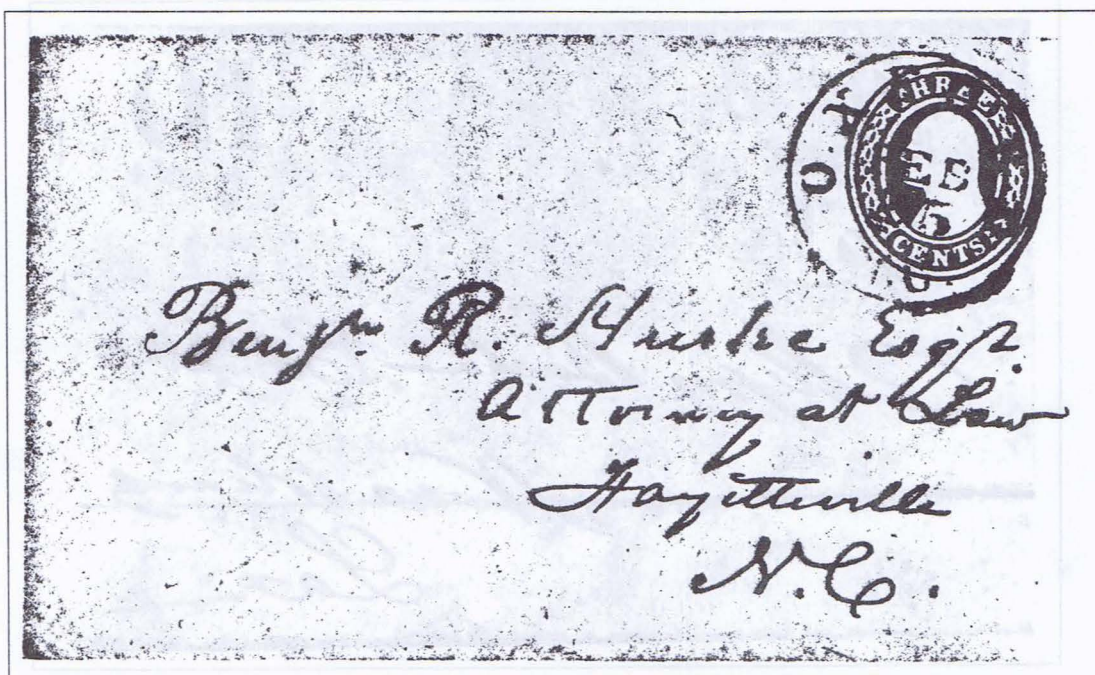 THREE
CENTS
FEB
5
Benjn. R. Huske Esqr.
Attorney at Law
Fayetteville
N.C.